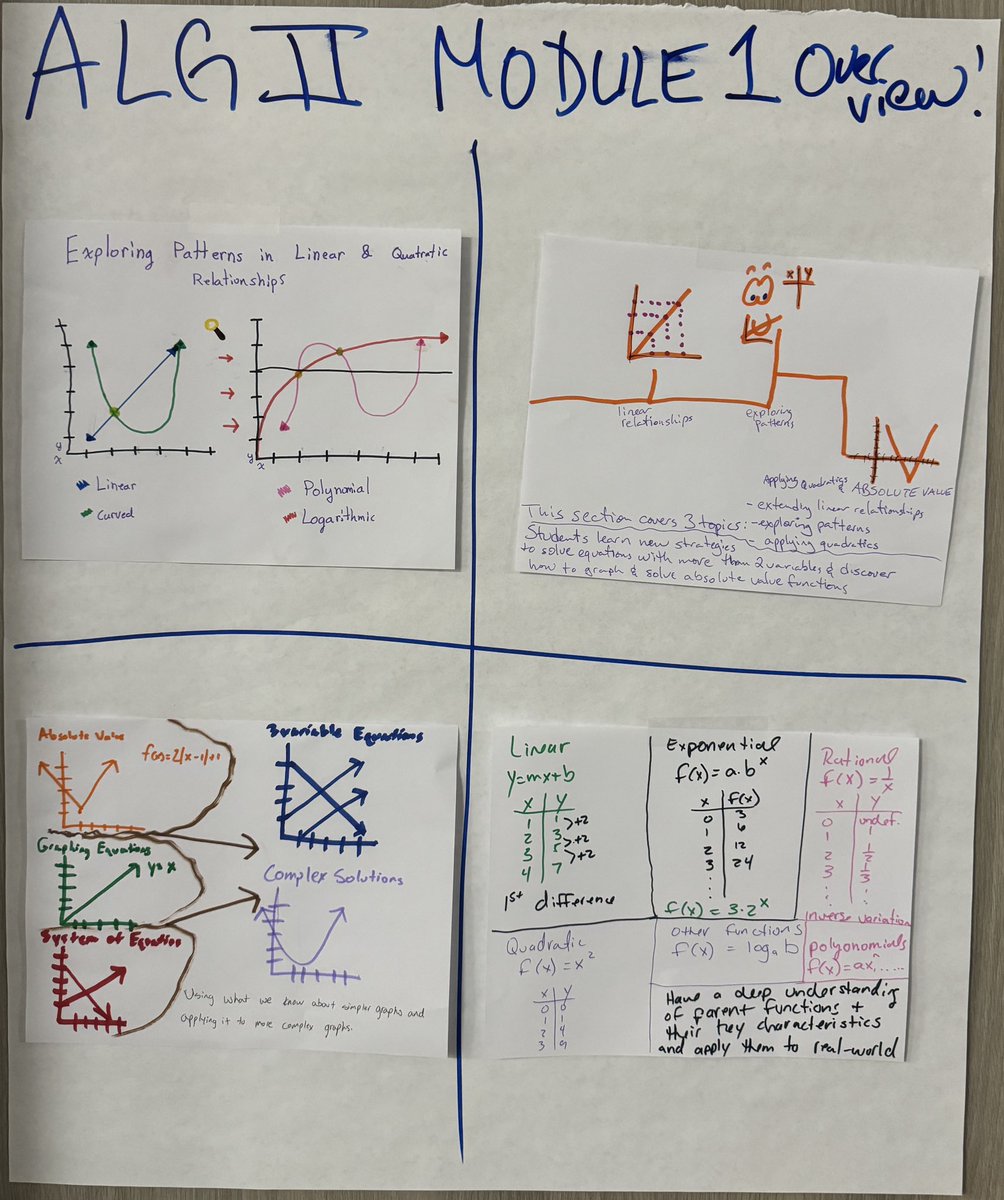 ALG II MODULE 1 Over
view!
Exploring Patterns in Linear & Quatratic
Relationships
y
x
y
x
Linear
Curved
Polynomial
Logarithmic
x y
linear
relationships
exploring
patterns
Applying quadratics
& ABSOLUTE VALUE
- extending linear relationships
This section covers 3 topics: - exploring patterns
- applying quadratics
Students learn new strategies
to solve equations with more than 2 variables & discover
how to graph & solve absolute value functions
Absolute Value
3 variable Equations
Graphing Equations
y=x
Complex Solutions
System of Equation
Using what we know about simpler graphs and
applying it to more complex graphs.
Linear
y=mx+b
x y
1 1
2 3 >+2
3 5 >+2
4 7 >+2
1st difference
Exponential
f(x)=a·b^x
x f(x)
0 3
1 6
2 12
3 24
f(x)=3·2^x
Rational
f(x)=1/x
x y
0 undef.
1 1
2 1/2
3 1/3
inverse variation
Quadratic
f(x)=x²
x y
0 0
1 1
2 4
3 9
Other functions
f(x) = logₐ b
polyonomials
f(x)=axⁿ......
Have a deep understanding
of parent functions +
their key characteristics
and apply them to real-world